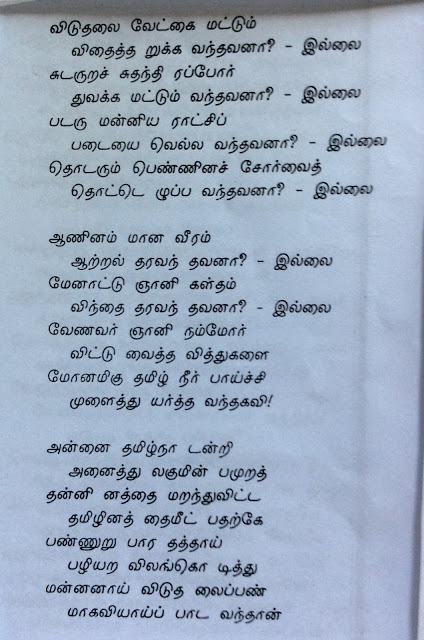 விடுதலை வேட்கை மட்டும்
விதைத்த றுக்க வந்தவனா? - இல்லை
சுடருறச் சுதந்தி ரப்போர்
துவக்க மட்டும் வந்தவனா? - இல்லை
படரு மன்னிய ராட்சிப்
படையை வெல்ல வந்தவனா? - இல்லை
தொடரும் பெண்ணினச் சோர்வைத்
தொட்டெ ழுப்ப வந்தவனா? - இல்லை
ஆணினம் மான வீரம்
ஆற்றல் தரவந் தவனா? - இல்லை
மேனாட்டு ஞானி கள்தம்
விந்தை தரவந் தவனா? - இல்லை
வேணவர் ஞானி நம்மோர்
விட்டு வைத்த வித்துகளை
மோனமிகு தமிழ் நீர் பாய்ச்சி
முளைத்து யர்த்த வந்தகவி!
அன்னை தமிழ்நா டன்றி
அனைத்து லகுமின் பமுறத்
தன்னி னத்தை மறந்துவிட்ட
தமிழினத் தைமீட் பதற்கே
பண்ணுறு பார தத்தாய்
பழியற விலங்கொ டித்து
மன்னனாய் விடுத லைப்பண்
மாகவியாய்ப் பாட வந்தான்